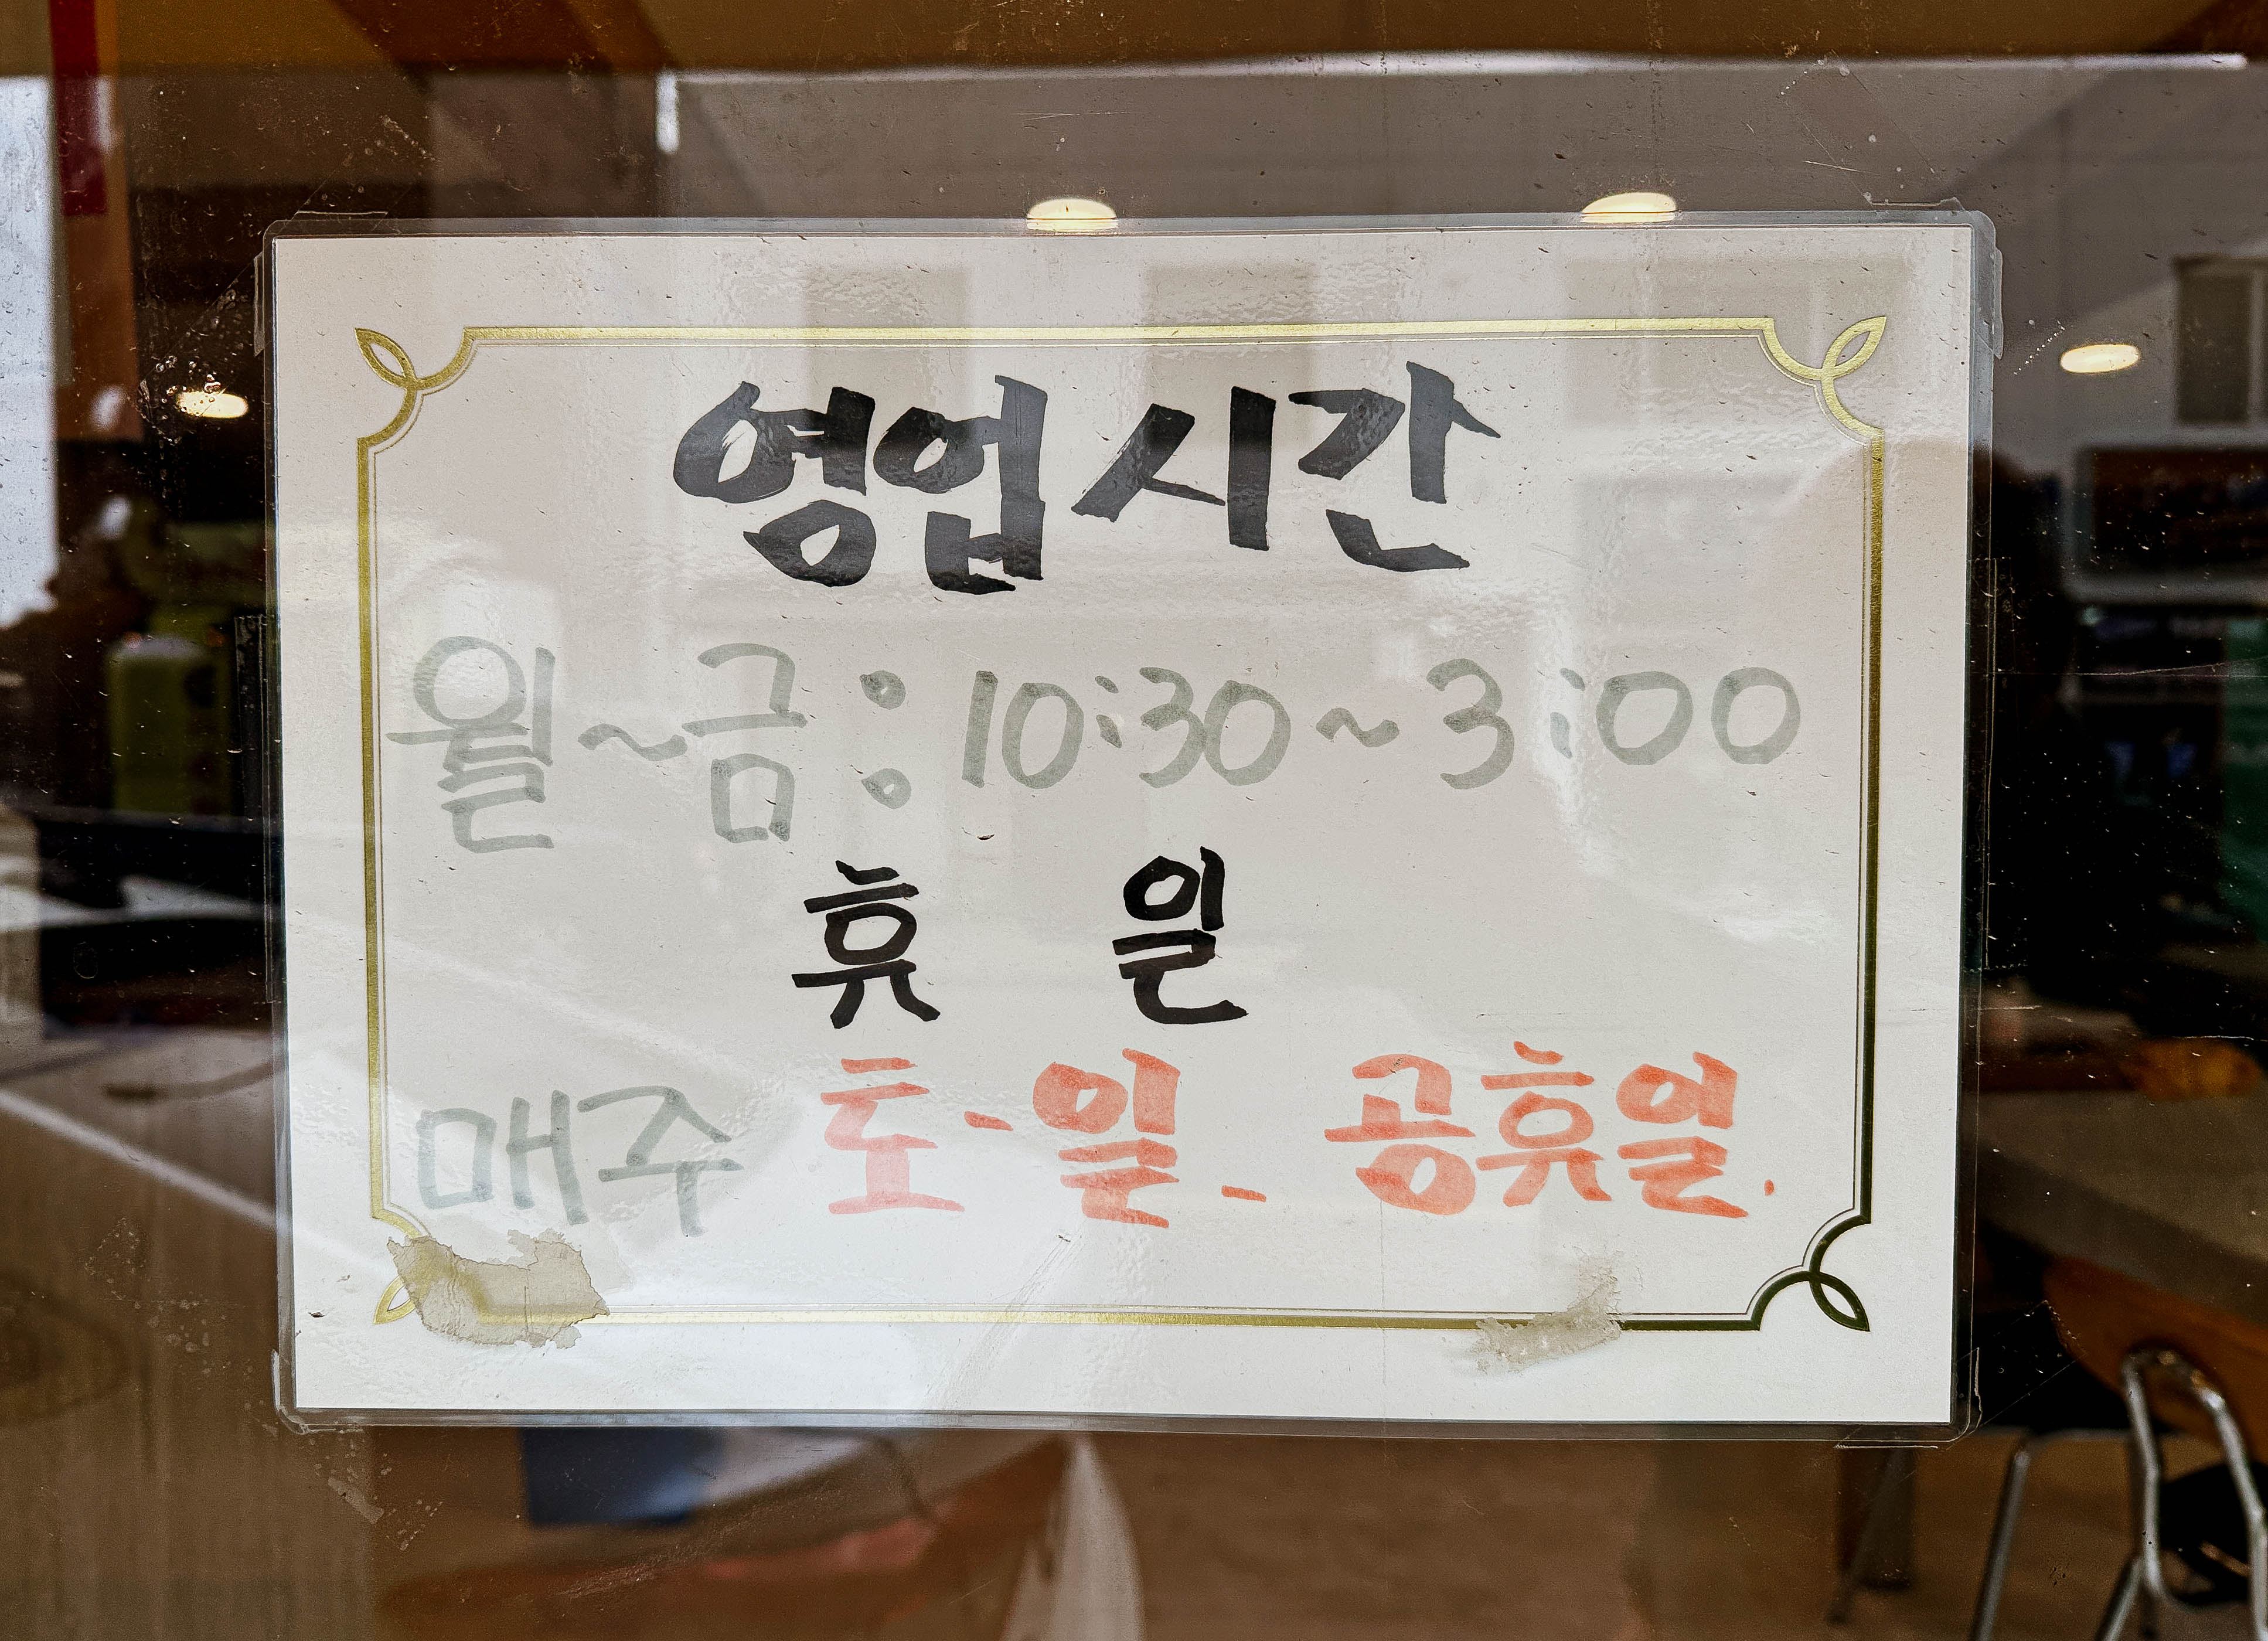 영업시간
월~금: 10:30~3:00
휴 일
매주 토-일- 공휴일.